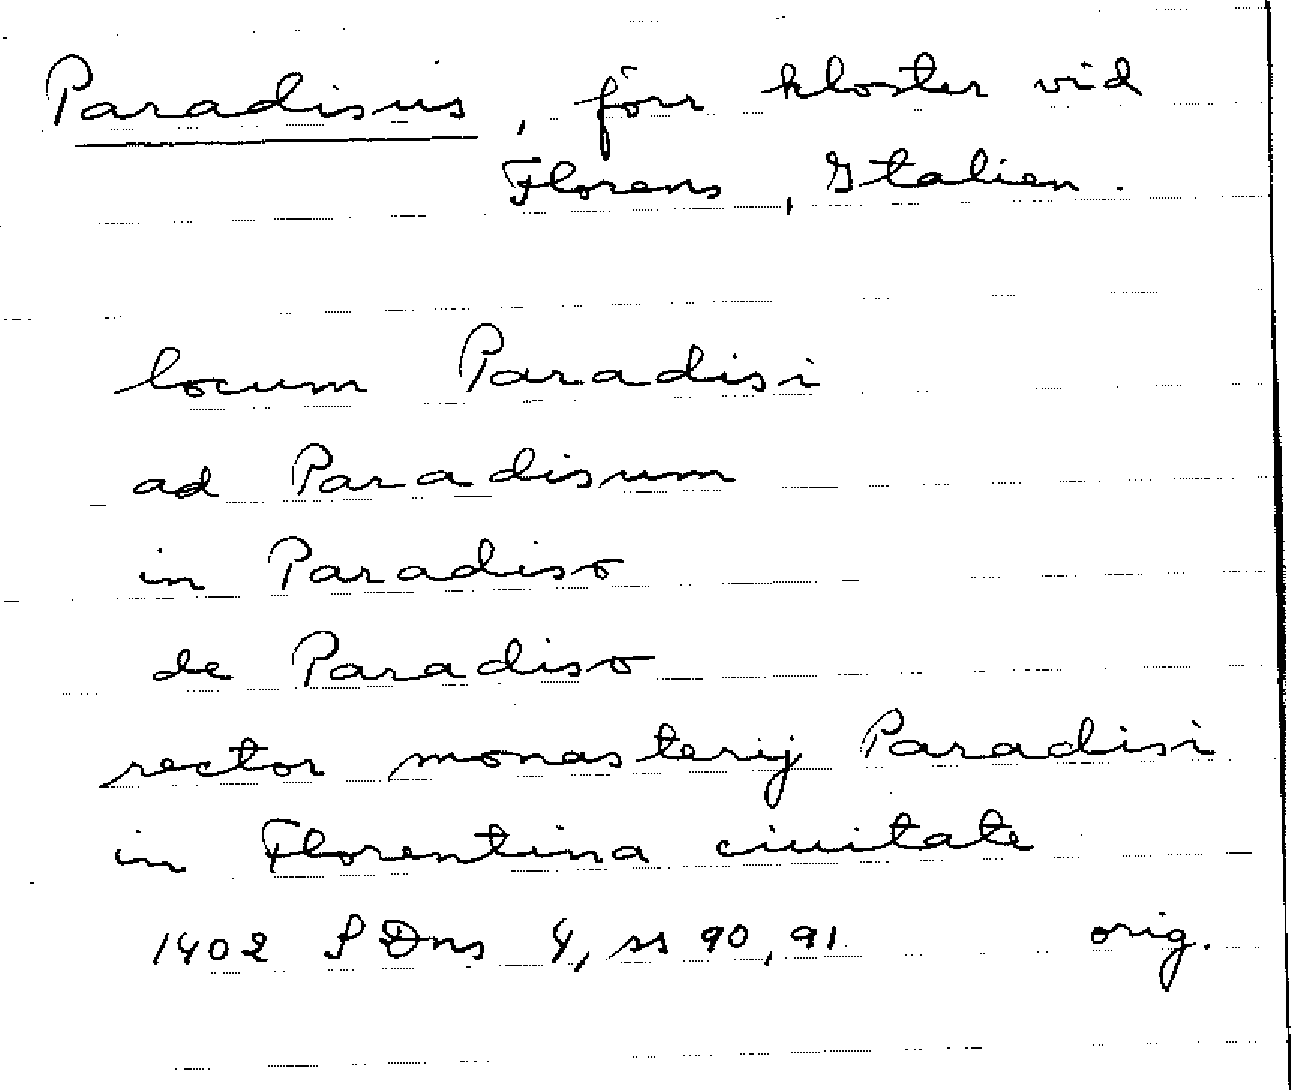 Paradisus, förr kloster vid
Florens, Italien.
locum Paradisi
ad Paradisum
in Paradiso
de Paradiso
rector monasterij Paradisi
in Florentina ciuitate
1402 SDns 4, ss 90, 91. orig.